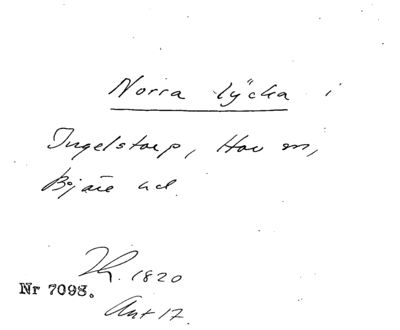 Norra lÿcka i
Ingelstorp, Hov sn,
Bjäre hd.
Th. 1820
Nr 7098.
Ant 17.